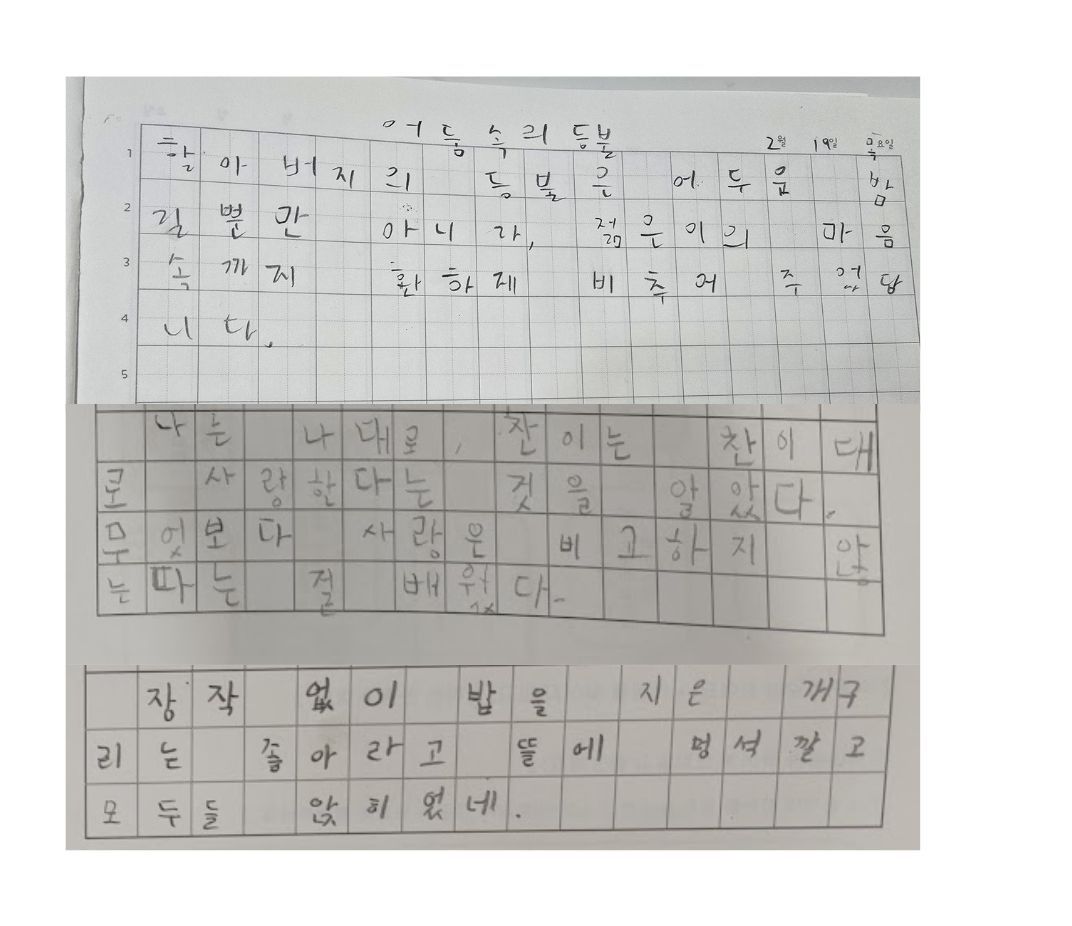 어둠 속의 등불 2월 19일 목요일
1 할아버지의 등불은 어두운 밤
2 길뿐만 아니라, 젊은이의 마음
3 속까지 환하게 비추어 주었습
4 니다.
5
나는 나대로, 찬이는 찬이대
로 사랑한다는 것을 알았다.
무엇보다 사랑은 비고하지 않
는따는 걸 배웠다.
장작 없이 밥을 지은 개구
리는 좋아라고 뜰에 멍석 깔고
모두들 앉히었네.